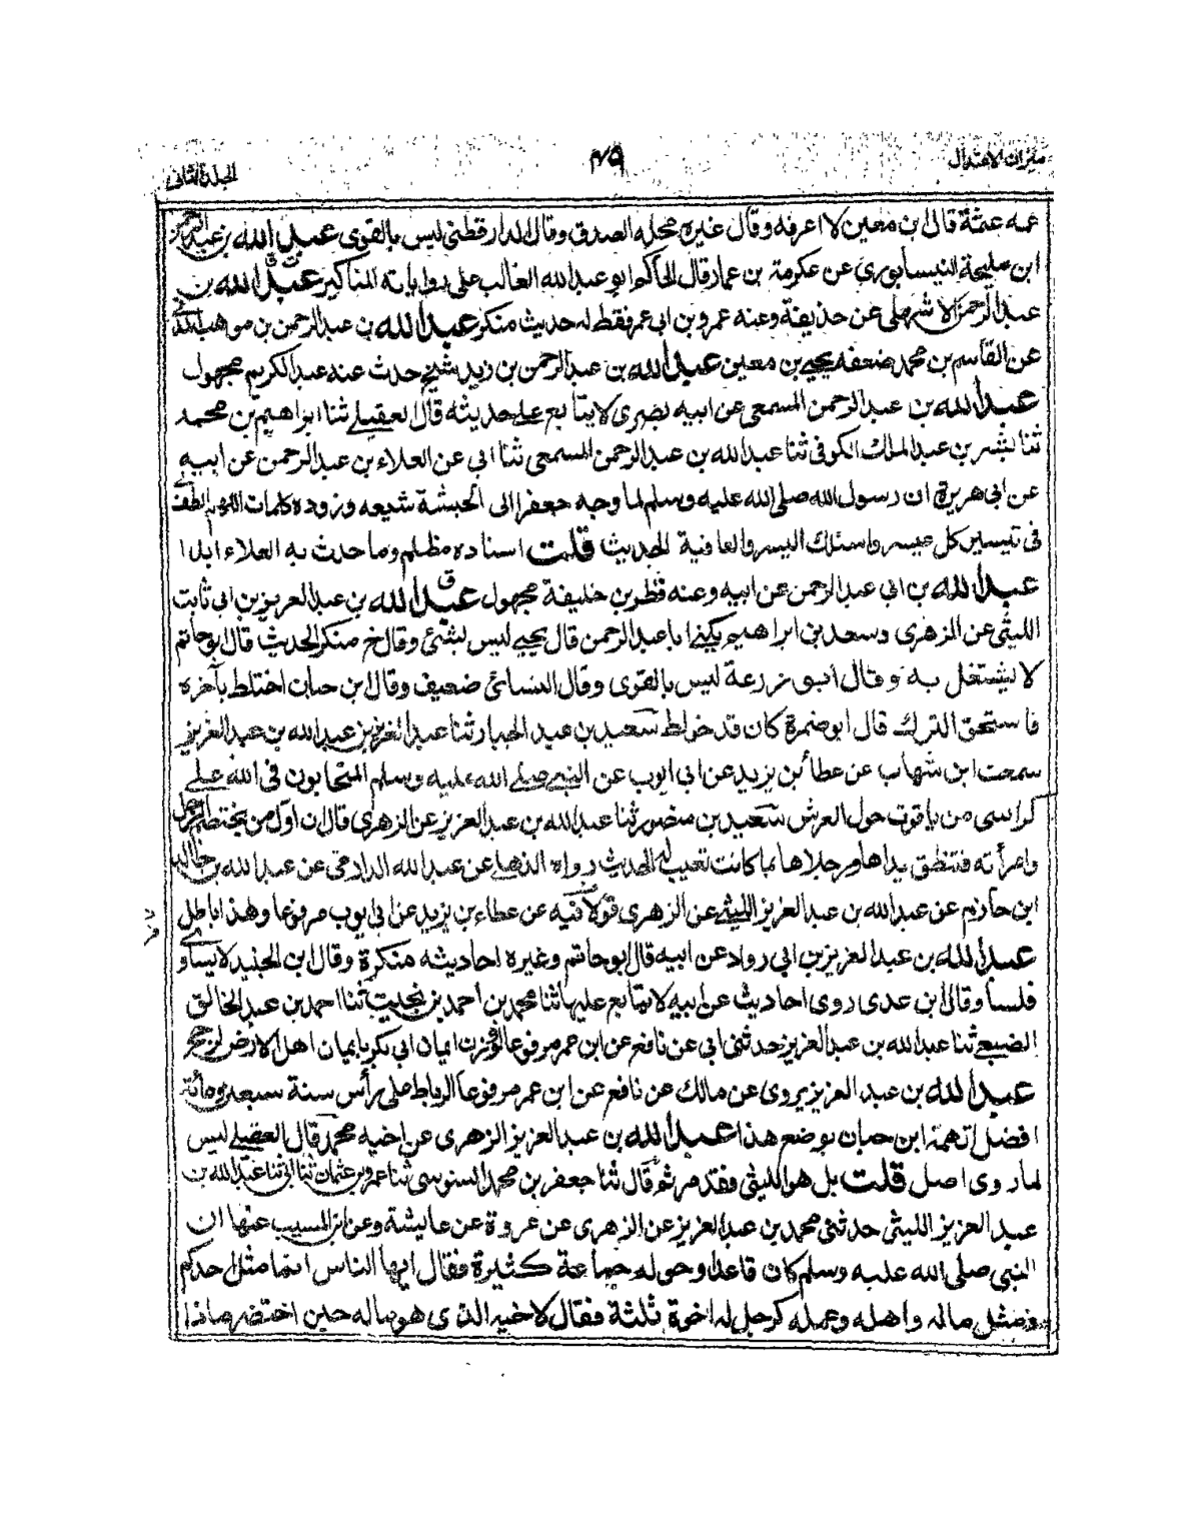 ميزان الاعتدال
٤٩
الجلد الثانى
عمه عثمة قال ابن معين لا اعرفه وقال غيره محله الصدق وقال الدارقطنى ليس بالقوى عبد الله بن عبد الرحمن
ابن مليحة النيسابورى عن عكرمة بن عمار قال الحاكم ابو عبد الله الغالب على رواياته المناكير عبد الله بن
عبد الرحمن الاشهلى عن حذيفة وعنه عمرو بن ابى عمر فقط له حديث منكر عبد الله بن عبد الرحمن بن موهب المدنى
عن القاسم بن محمد ضعفه يحيى بن معين عبد الله بن عبد الرحمن بن زيد شيخ حدث عنه عبد الكريم مجهول
عبد الله بن عبد الرحمن المسمعى عن ابيه بصرى لا يتابع على حديثه قال العقيلى ثنا ابراهيم بن محمد
ثنا بشر بن عبد الملك الكوفى ثنا عبد الله بن عبد الرحمن المسمعى ثنا ابى عن العلاء بن عبد الرحمن عن ابيه
عن ابى هريرة ان رسول الله صلى الله عليه وسلم لما وجه جعفر الى الحبشة شيعه وزوده كلمات اللهم الطف
فى تيسير كل عسير واسئلك اليسر والعافية الحديث قلت اسناده مظلم وما حدث به العلاء ابدا
عبد الله بن ابى عبد الرحمن عن ابيه وعنه فطر بن خليفة مجهول عبد الله بن عبد العزيز بن ابى ثابت
الليثى عن الزهرى وسعد بن ابراهيم يكنى ابا عبد الرحمن قال يحيى ليس بشئ وقال خ منكر الحديث قال ابو حاتم
لا يشتغل به وقال ابو زرعة ليس بالقوى وقال النسائى ضعيف وقال ابن حبان اختلط بآخره
فاستحق الترك قال ابو ضمرة كان قد خولط سعيد بن عبد الجبار ثنا عبد العزيز بن عبد الله بن عبد العزيز
سمعت ابن شهاب عن عطاء بن يزيد عن ابى ايوب عن النبى صلى الله عليه وسلم المتحابون فى الله على
كراسى من ياقوت حول العرش سعيد بن منصور ثنا عبد الله بن عبد العزيز عن الزهرى قال ان اول من يختصم الرجل
وامرأته فتنطق يداها ورجلاها بما كانت تعيب له الحديث رواه الذهلى عن عبد الله الدارمى عن عبد الله بن خالد
ابن حازم عن عبد الله بن عبد العزيز الليثى عن الزهرى قولا فيه عن عطاء بن يزيد عن ابى ايوب مرفوعا وهذا باطل
عبد الله بن عبد العزيز بن ابى رواد عن ابيه قال ابو حاتم وغيره احاديثه منكرة وقال ابن الجنيد لا يساوى
فلسا وقال ابن عدى روى احاديث عن ابيه لا يتابع عليها ثنا محمد بن احمد بن بخيت ثنا احمد بن عبد الخالق
الضبعى ثنا عبد الله بن عبد العزيز حدثنى ابى عن نافع عن ابن عمر مرفوعا لو وزن ايمان ابى بكر بايمان اهل الارض لرجح
عبد الله بن عبد العزيز يروى عن مالك عن نافع عن ابن عمر مرفوعا الرباط على رأس سنة سبعين ومائة
افضل اتهمه ابن حبان بوضع هذا عبد الله بن عبد العزيز الزهرى عن اخيه محمد قال العقيلى ليس
لما روى اصل قلت بل هو الليثى فقد مر ثم قال ثنا جعفر بن محمد السوسى ثنا عمرو بن عثمان ثنا ابى ثنا عبد الله بن
عبد العزيز الليثى حدثنى محمد بن عبد العزيز عن الزهرى عن عروة عن عايشة وعن ابن المسيب عنها ان
النبى صلى الله عليه وسلم كان قاعدا وحوله جماعة كثيرة فقال ايها الناس انما مثل احدكم
ومثل ماله واهله وعمله كرجل له اخوة ثلثة فقال لاخيه الذى هو ماله حين احتضر ماذا